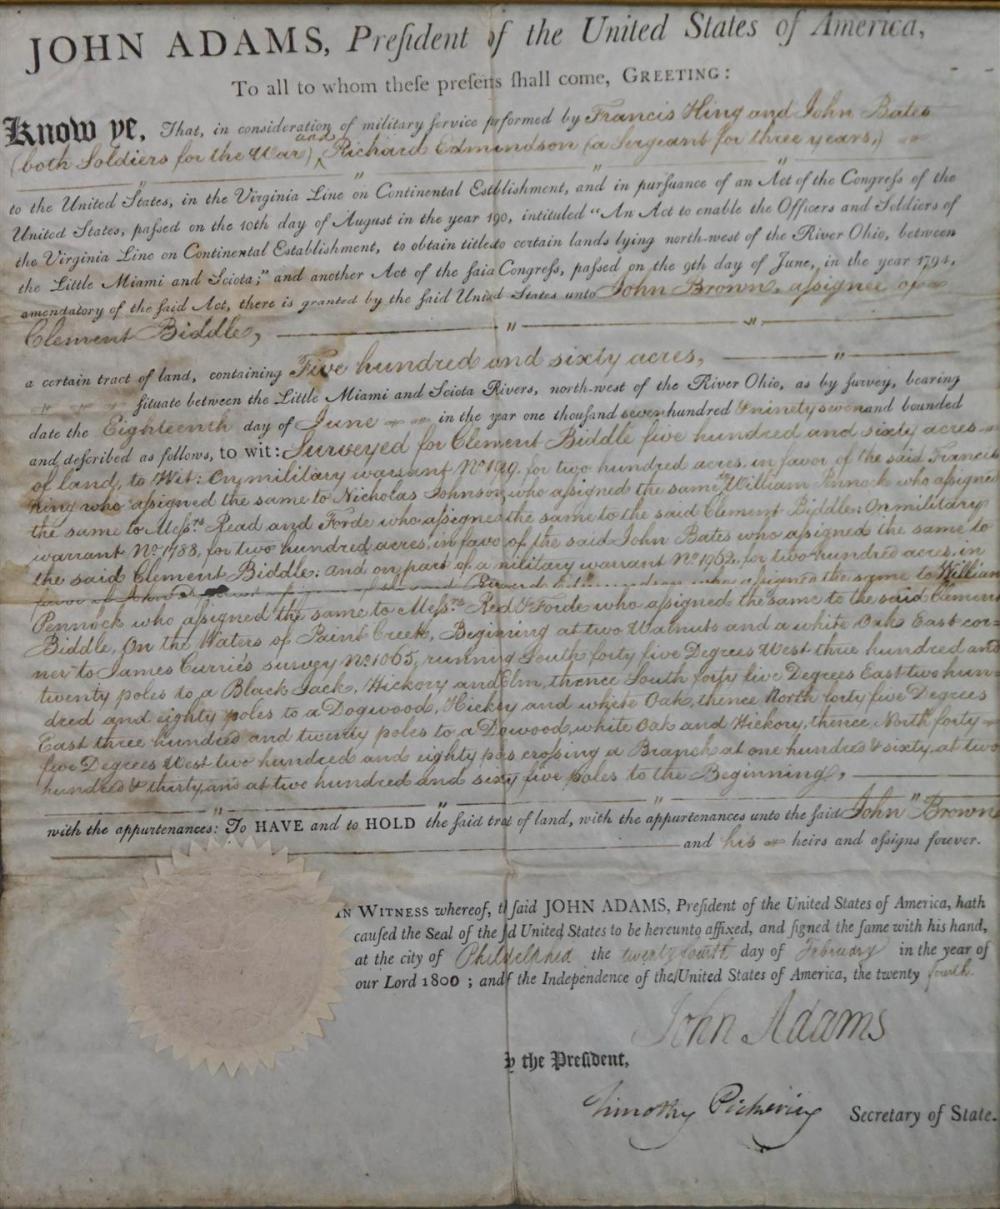 JOHN ADAMS, Preſident of the United States of America,
To all to whom theſe preſents ſhall come, GREETING:
Know ye, That, in conſideration of military ſervice performed by Francis King and John Bates
(both Soldiers for the War) and Richard Edmindson (a Sergeant for three years,)
to the United States, in the Virginia Line on Continental Eſtabliſhment, and in purſuance of an Act of the Congreſs of the
United States, paſſed on the 10th day of Auguſt in the year 190, intituled "An Act to enable the Officers and Soldiers of
the Virginia Line on Continental Eſtabliſhment, to obtain titles to certain lands lying north-weſt of the River Ohio, between
the Little Miami and Sciota;" and another Act of the ſaid Congreſs, paſſed on the 9th day of June, in the year 1794,
amendatory of the ſaid Act, there is granted by the ſaid United States unto John Brown, aſsignee of
Clement Biddle,
a certain tract of land, containing Five hundred and sixty acres,
ſituate between the Little Miami and Sciota Rivers, north-weſt of the River Ohio, as by ſurvey, bearing
date the Eighteenth day of June in the year one thouſand seven hundred & ninety seven and bounded
and deſcribed as follows, to wit: Surveyed for Clement Biddle five hundred and sixty acres
of land, to Wit: On military warrant No. for two hundred acres, in favor of the said Francis
King who aſsigned the same to Nicholas Johnson, who aſsigned the same to William Pennock who aſsigned
the same to Meſs.rs Read and Forde who aſsigned the same to the said Clement Biddle: On military
warrant No. 1788, for two hundred acres, in favo of the said John Bates who aſsigned the same to
the said Clement Biddle: and on part of a military warrant No. 1963, for two hundred acres, in
favor of who aſsigned the same to William
Pennock who aſsigned the same to Meſs.rs Red & Forde who aſsigned the same to the said Clement
Biddle, On the Waters of Paint Creek, Beginning at two Walnuts and a white Oak East cor=
ner to James Curries survey No. 1065, running South forty five Degrees West three hundred and
twenty poles to a Black Jack, Hickory and Elm, thence South forty five Degrees East two hun=
dred and eighty poles to a Dogwood, Hickry and white Oak, thence North forty five Degrees
East three hundred and twenty poles to a Dowood, white Oak and Hickory, thence North forty
five Degrees West two hundred and eighty pos croſsing a Branch at one hundred & sixty, at two
hundred & thirty, and at two hundred and sixty five poles to the Beginning,
with the appurtenances: To HAVE and to HOLD the ſaid trat of land, with the appurtenances unto the ſaid John Brown
and his heirs and aſſigns forever.
IN WITNESS whereof, t ſaid JOHN ADAMS, Preſident of the United States of America, hath
cauſed the Seal of the ſd United States to be hereunto affixed, and ſigned the ſame with his hand,
at the city of Phildelphia the twenty fourth day of February in the year of
our Lord 1800; and of the Independence of the United States of America, the twenty fourth.
John Adams
y the Preſident,
Timothy Pickering Secretary of State.